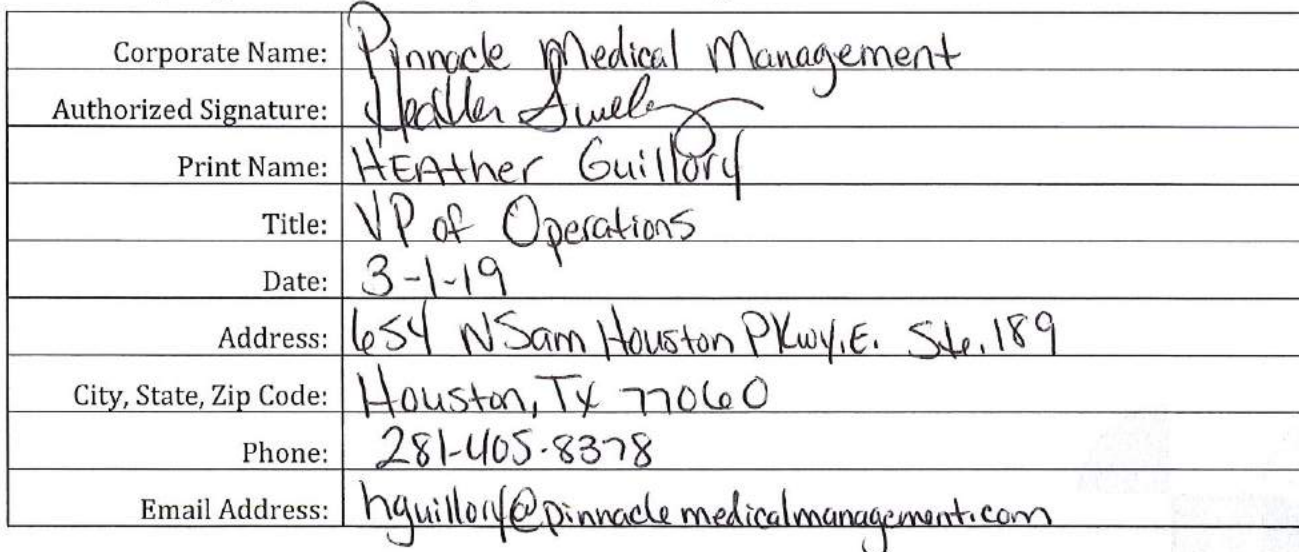 Corporate Name: Pinnacle Medical Management
Authorized Signature: Heather
Print Name: HEAther Guillory
Title: VP of Operations
Date: 3-1-19
Address: 654 N Sam Houston PKwy. E. Ste. 189
City, State, Zip Code: Houston, Tx 77060
Phone: 281-405-8378
Email Address: hguillory@pinnaclemedicalmanagement.com